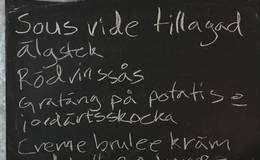 Sous vide tillagad
älgstek
Rödvinssås
Gratäng på potatis &
jordärtsskocka
Creme brulee kräm